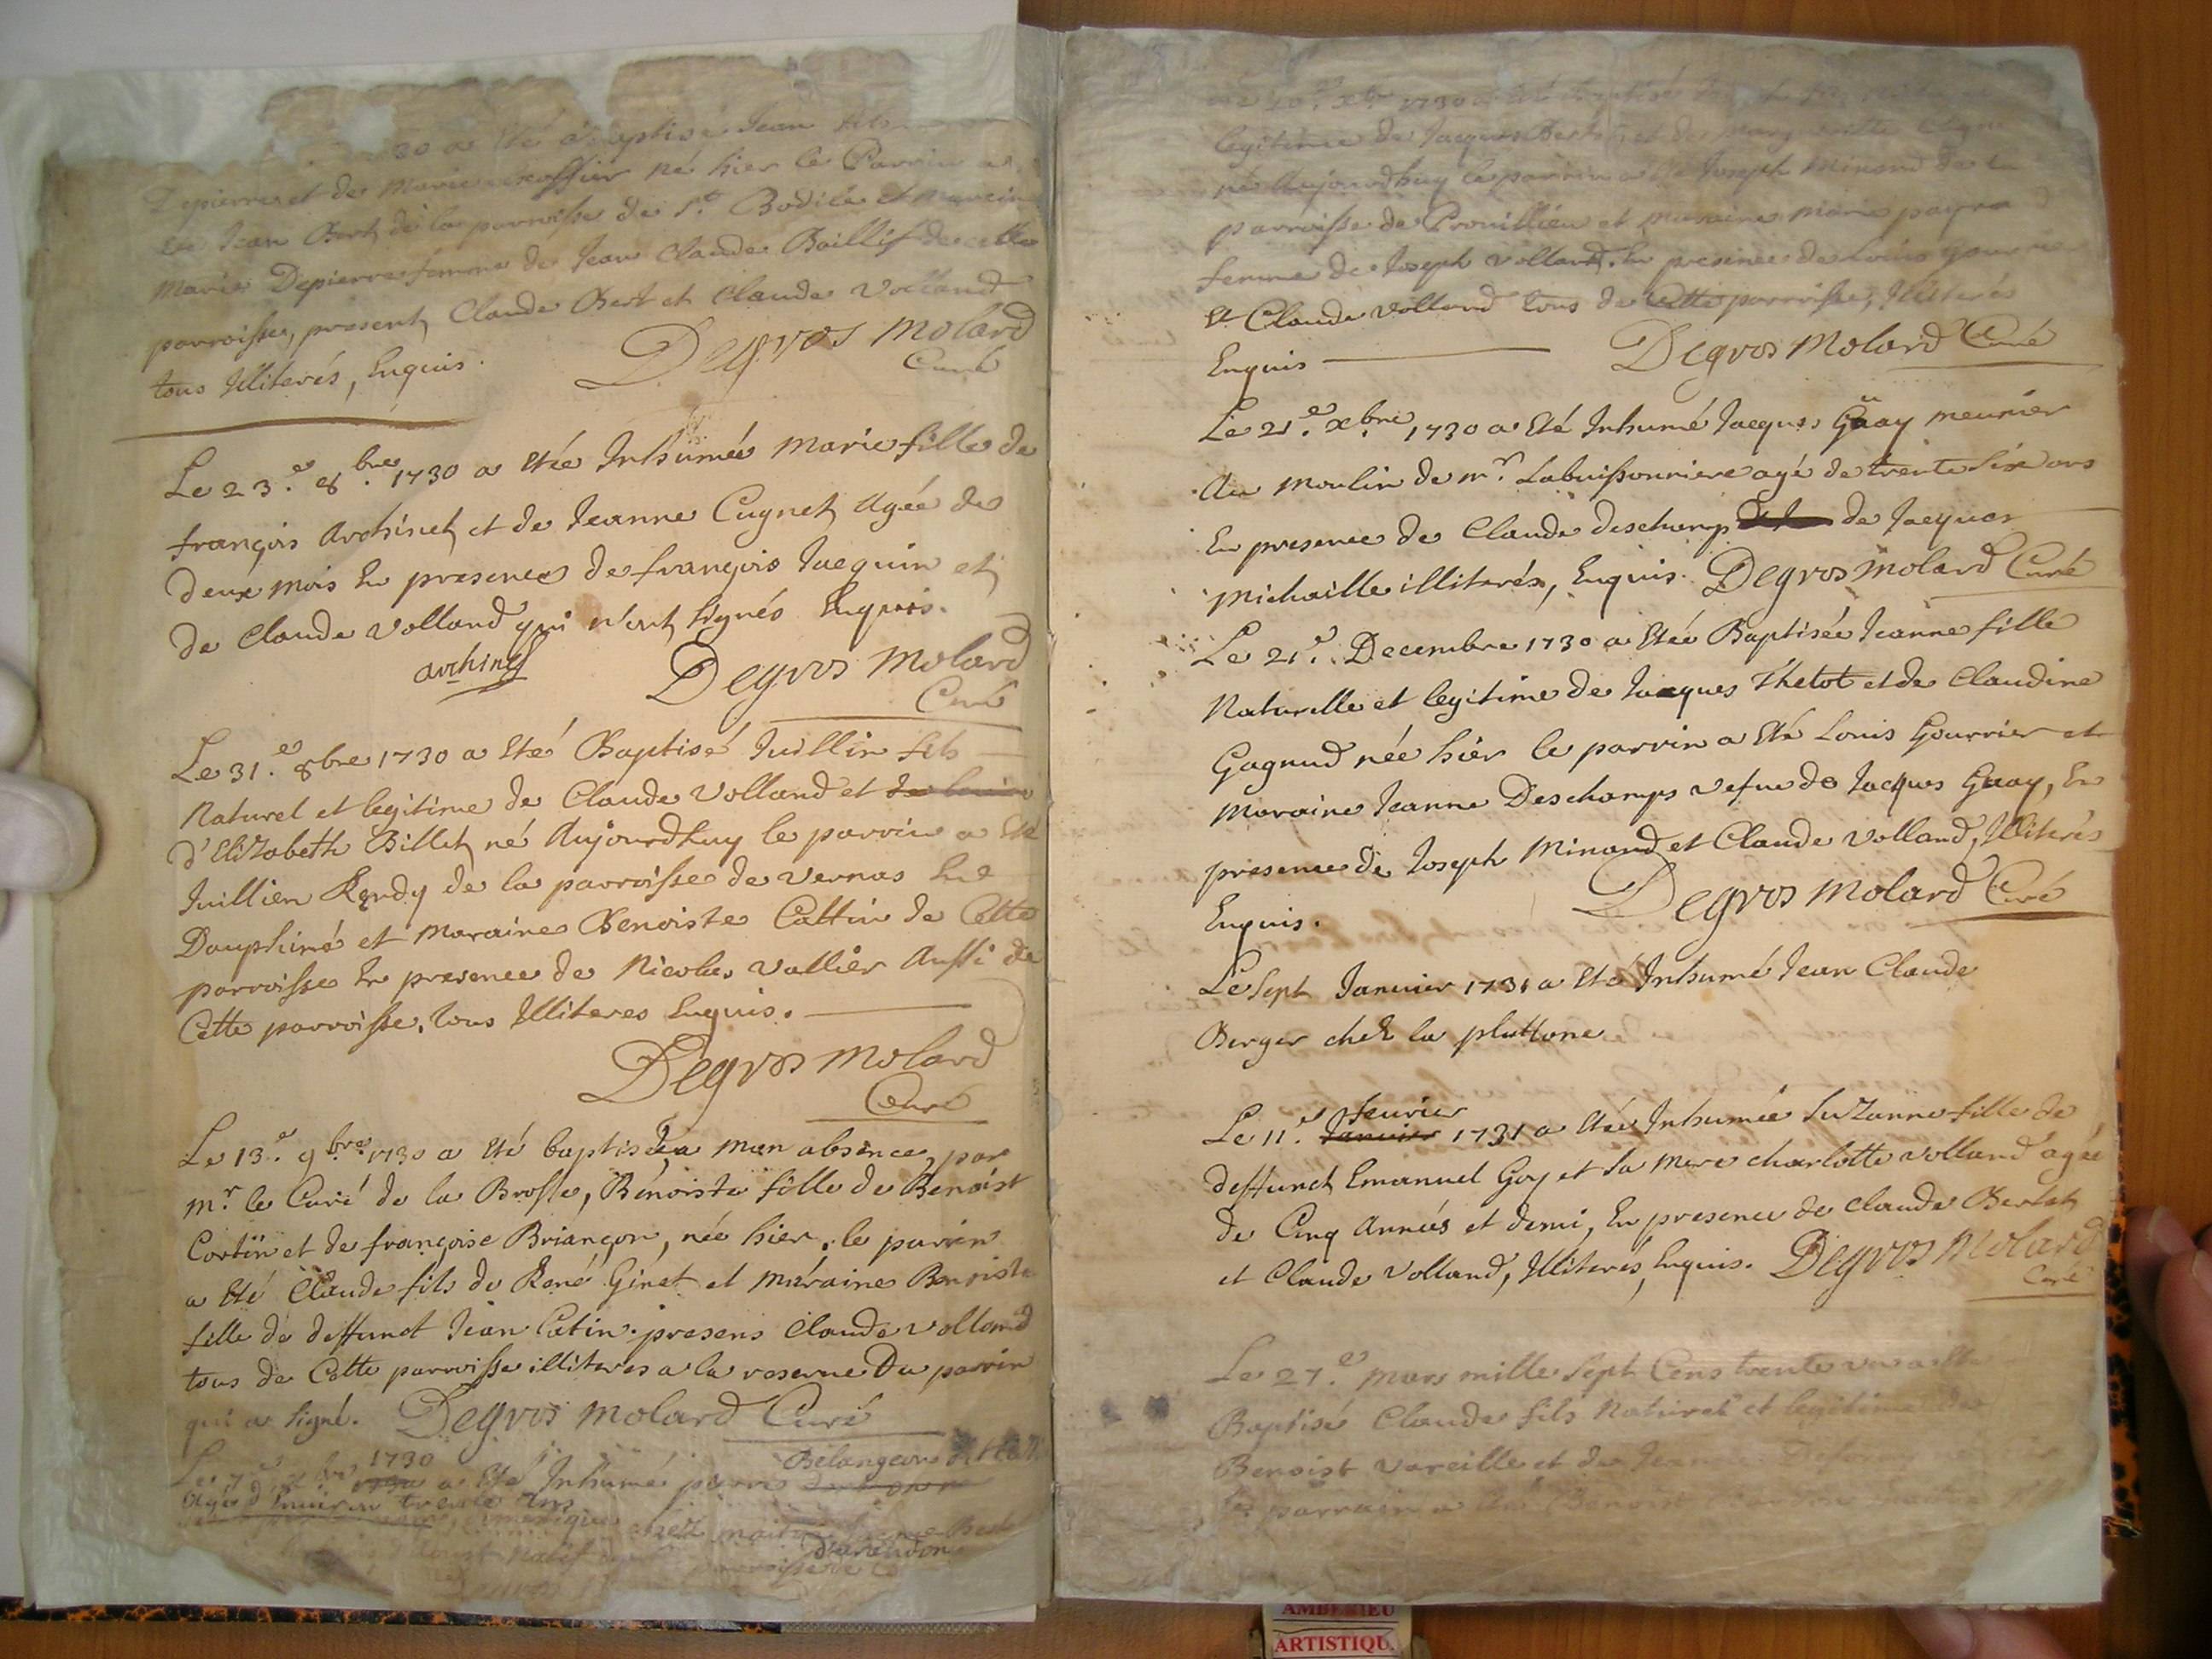 30 a Eté Baptisé Jean fils
Depierre et de Marie né hier le Parrin a
Jean Bert de la parroisse de St. Bodile et mareine
Marie Depierre femme de Jean Claude Baillif de cette
parroisse, present Claude Bert et Claude Volland
tous Illiterés, Enquis.
Degros Molard
Curé
Le 23.e 8.bre 1730 a Etée Inhumée Marie fille de
françois Archinet et de Jeanne Cugnet Agée de
deux mois En presence de françois Jacquin et
de Claude Volland qui n'ont signés Enquis.
archinet
Degros Molard
Curé
Le 31.e 8bre 1730 a Eté Baptisé Juillin fils
Naturel et legitime de Claude Volland et de
d'Elizabeth Billet né Aujourdhuy le parrin a Eté
Juillien Rendy de la parroisse de Vernas En
Dauphiné et Maraine Benoiste Cattin de Cette
parroisse En presence de Nicolas Vallier Aussi de
Cette parroisse, tous Illiteres Enquis.
Degros Molard
Curé
Le 13.e 9bre 1730 a Eté baptisée a mon absence, par
mr. le Curé de la Brosse, Bénoiste fille de Benoist
Cortïn et de françoise Briançon, née hier, le parein
a Eté Claude fils de René Ginet et Maraine Benoiste
fille de deffunct Jean Catin. presens Claude Volland
tous de Cette parroisse illiteres a la reserve Du parrin
qui a signé. Degros Molard Curé
Le 7.e 1730 a Eté Inhumé pierre Bélangeon
Agé d'Environ trente ans
chez
natif
parroisse de
Le 20.e xbre 1730 a Eté Baptisé
legitime de Jacques Bert et de Marguerite
né Aujourdhuy le parrin a Eté Joseph Minand de la
parroisse de Prouillieu et maraine Marie payra
femme de Joseph Volland. En presence de Louis Gourrier
Et Claude Volland tous de Cette parroisse, Illiterés
Enquis Degros Molard Curé
Le 21.e xbre 1730 a Eté Inhumé Jacques Guay meunier
Au Moulin de mr. Labuissonniere agé de trente six ans
En presence de Claude Deschamp de Jacques
Michaille illiterés, Enquis. Degros Molard Curé
Le 21.e Decembre 1730 a Etée Baptisée Jeanne fille
Naturelle et legitime de Jacques Thetot et de Claudine
Gagnud née hier le parrin a Eté Louis Gourrier et
Maraine Jeanne Deschamps vefue de Jacques Guay, En
presence de Joseph Minand et Claude Volland, Illiterés
Enquis. Degros Molard Curé
Le sept Januier 1731 a Eté Inhumé Jean Claude
Berger chez la pluttone
Le 11.e Januier feurier 1731 a Etée Inhumée Suzanne fille de
deffunct Emanuel Goy et sa mere charlotte Volland agée
de Cinq Années et demi, En presence de Claude Bertet
et Claude Volland, Illiterés, Enquis. Degros Molard
Curé
Le 27.e Mars mille Sept Cens trente un a Eté
Baptisé Claude fils Naturel et legitime de
Benoist Vareille et de Jeanne
Le parrain a Eté Benoist
AMBERIEU
ARTISTIQU